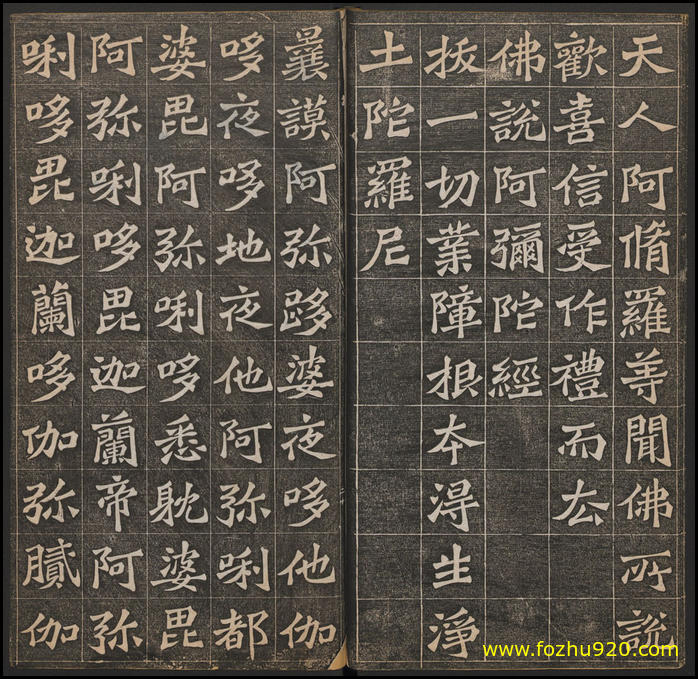 天人阿脩羅等聞佛所說
歡喜信受作禮而厺
佛說阿彌陀經
拔一切業障根夲淂生淨
土陀羅尼
曩謨阿弥跢婆夜哆他伽
哆夜哆地夜他阿弥唎都
婆毘阿弥唎哆悉耽婆毘
阿弥唎哆毘迦蘭帝阿弥
唎哆毘迦蘭哆伽弥膩伽
www.fozhu920.com